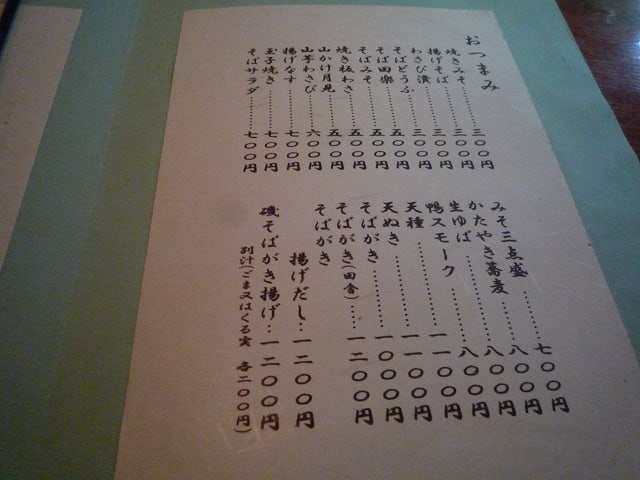 おつまみ
焼きみそ………三〇〇円
揚げそば………三〇〇円
わさび漬………三〇〇円
そばどうふ……三〇〇円
そば田楽………五〇〇円
そばみそ………五〇〇円
焼き板わさ……五〇〇円
山かけ月見……五〇〇円
山芋わさび……六〇〇円
揚げなす………七〇〇円
玉子焼き………七〇〇円
そばサラダ……七〇〇円
みそ三点盛……七〇〇円
かたやき蕎麦……八〇〇円
生ゆば…………八〇〇円
鴨スモーク……八〇〇円
天種…………一一〇〇円
天ぬき………一一〇〇円
そばがき……一〇〇〇円
そばがき(田舎)…一二〇〇円
そばがき
揚げだし…一二〇〇円
磯そばがき揚げ…一二〇〇円
別汁(ごま又はくる実 各二〇〇円)